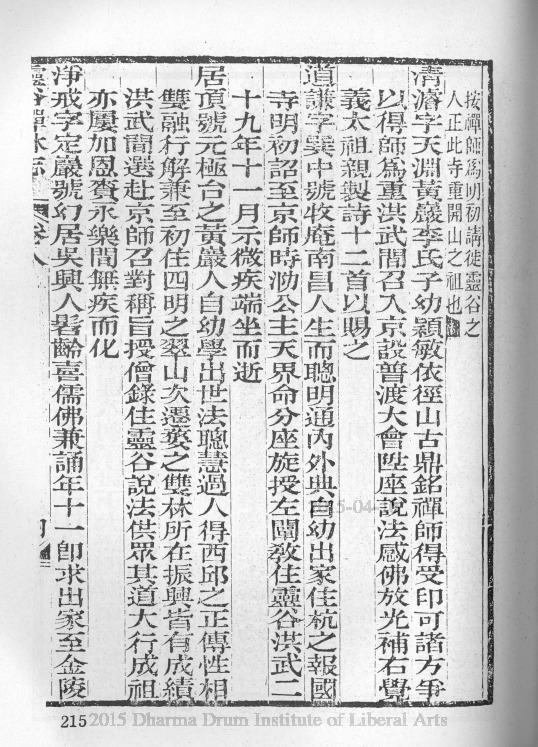 按禪師爲明初講徒靈谷之
人正此寺重開山之祖也
清濬字天淵黃巖李氏子幼穎敏依徑山古鼎銘禪師得受印可諸方爭
以得師爲重洪武閒召入京設普渡大會陞座說法感佛放光補右覺
義太祖親製詩十二首以賜之
道謙字巽中號牧庵南昌人生而聰明通內外典自幼出家住杭之報國
寺明初詔至京師時泐公主天界命分座旋授左闡敎住靈谷洪武二
十九年十一月示微疾端坐而逝
居頂號元極台之黃巖人自幼學出世法聰慧過人得西邱之正傳性相
雙融行解兼至初住四明之翠山次遷婺之雙林所在振興皆有成績
洪武簡選赴京師召對稱旨授僧錄住靈谷說法供眾其道大行成祖
亦屢加恩賚永樂閒無疾而化
淨戒字定巖號幻居吳興人髫齡喜儒佛兼誦年十一卽求出家至金陵
靈谷禪林志 卷八
215
2015 Dharma Drum Institute of Liberal Arts